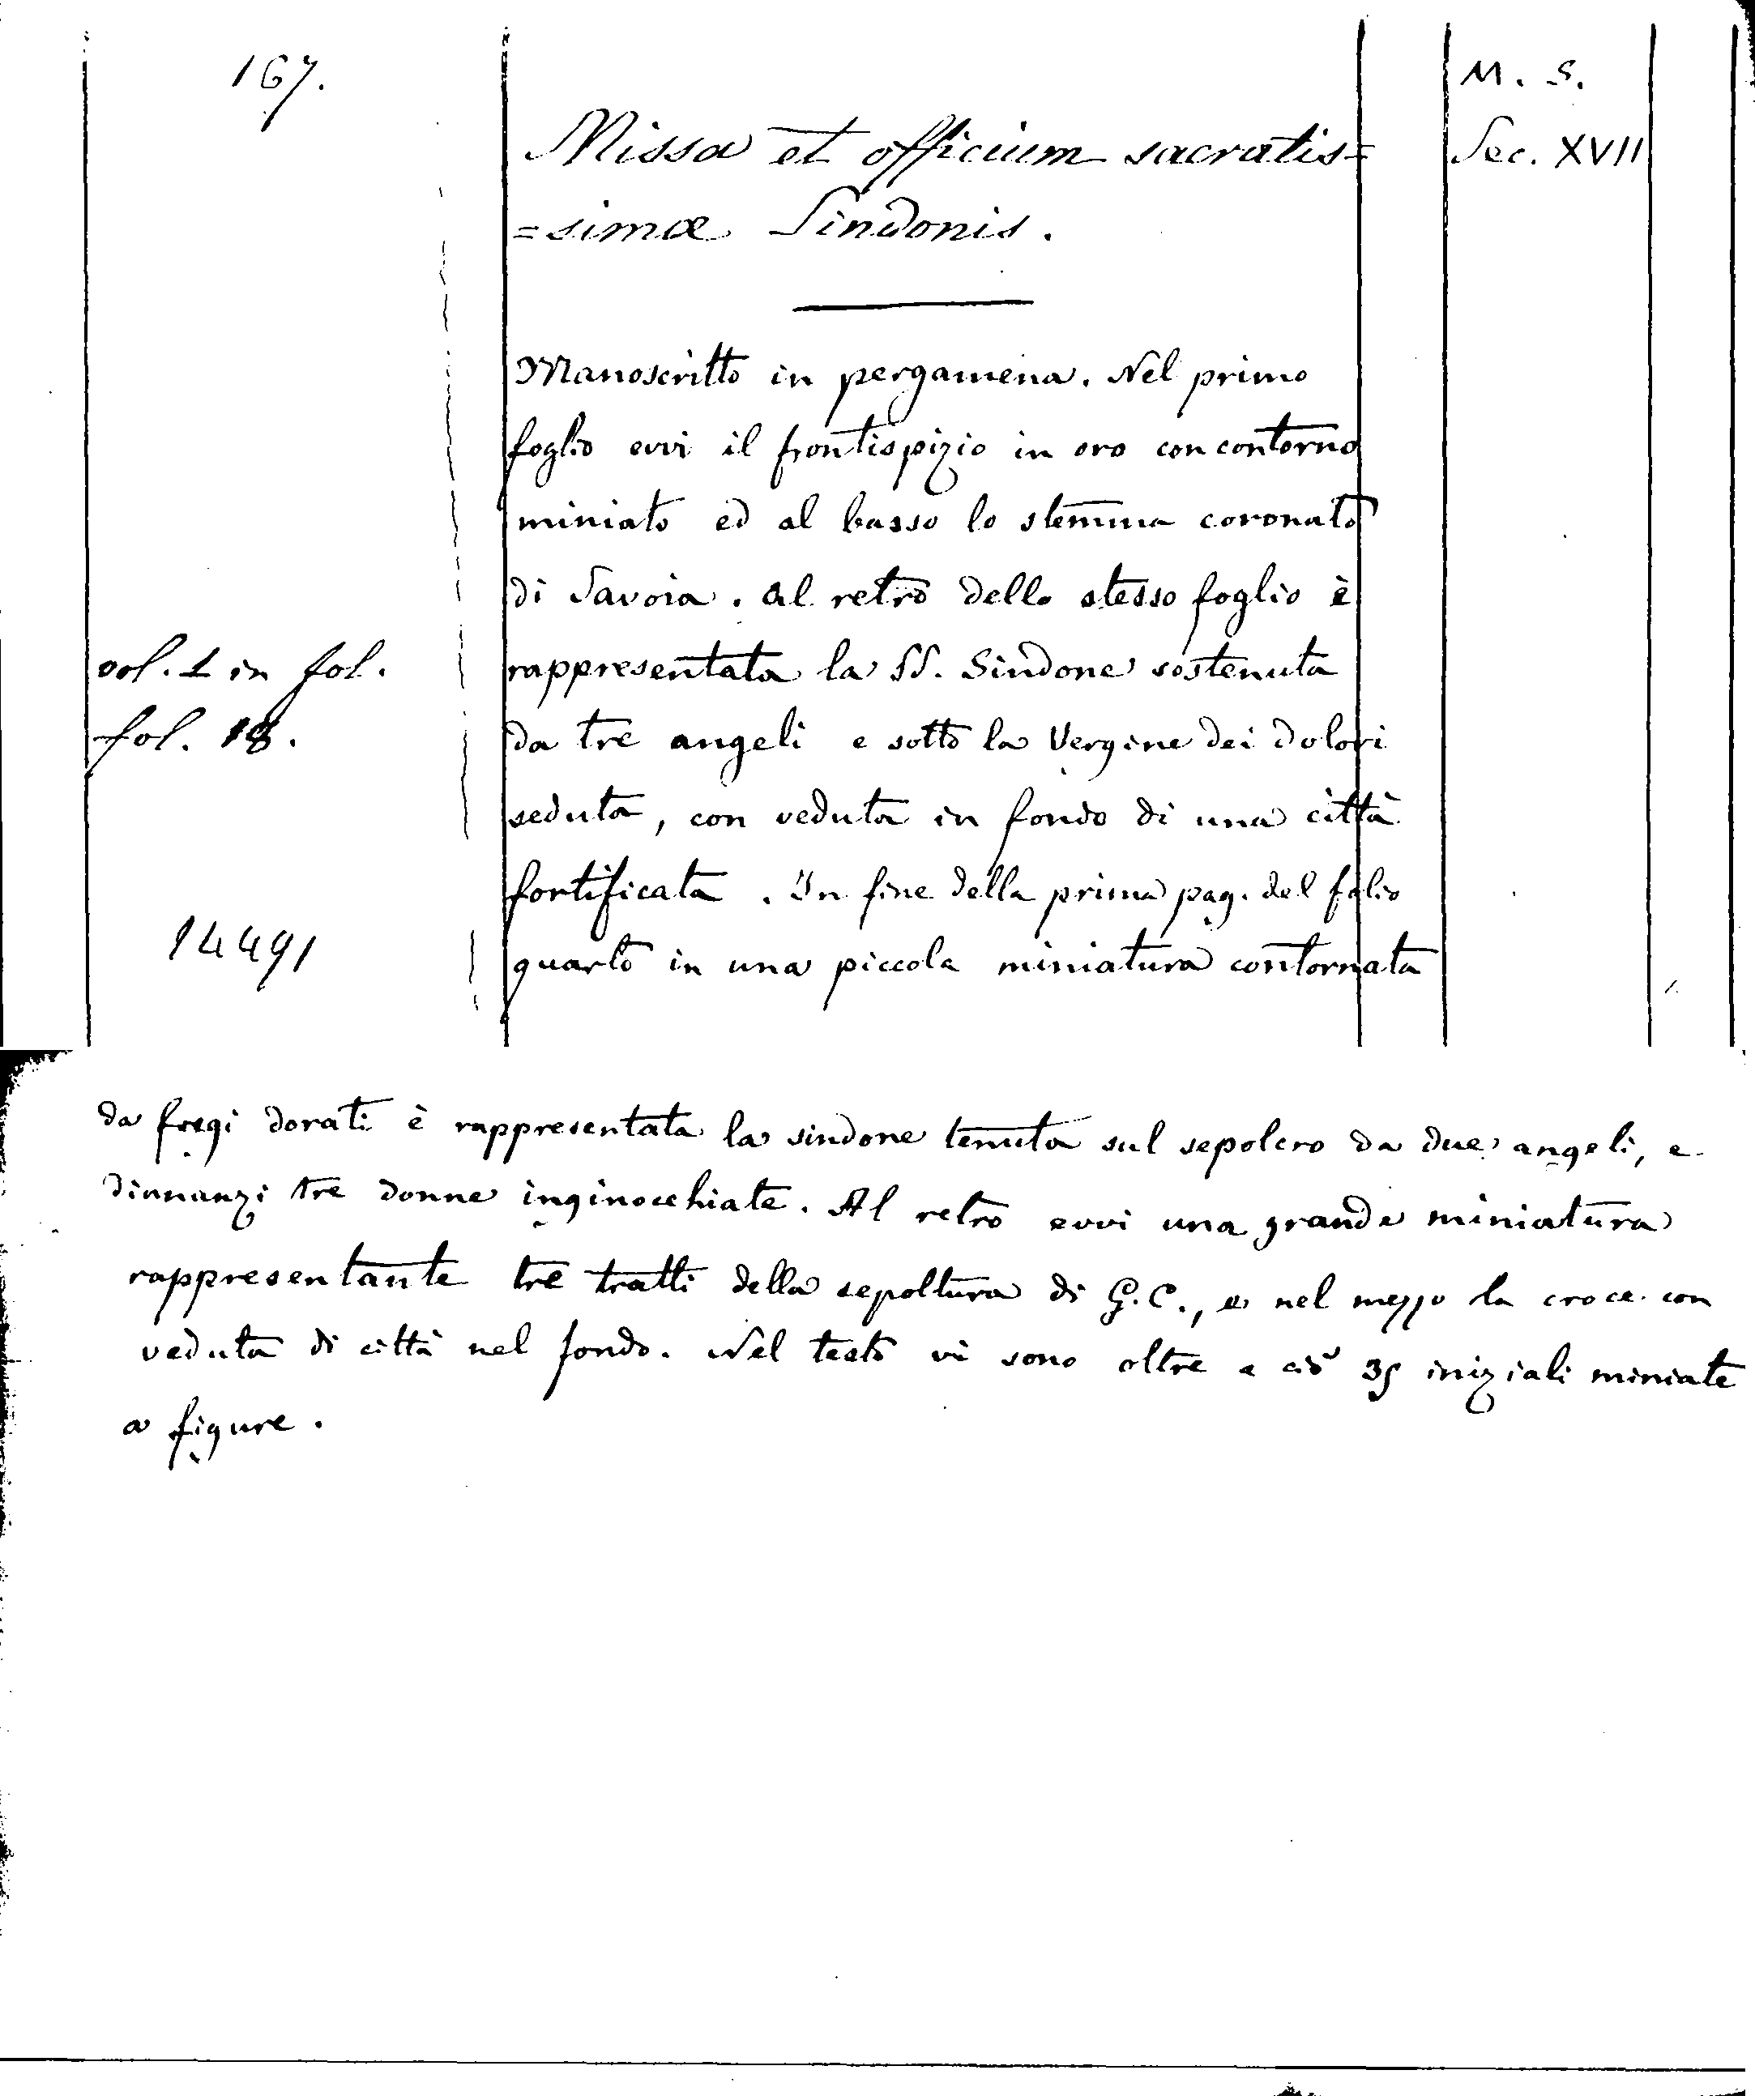 167.
M. S.
Missa et officium sacratis=
Sec. XVII
=simæ Sindonis.
Manoscritto in pergamena. Nel primo
foglio evvi il frontispizio in oro con contorno
miniato ed al basso lo stemma coronato
di Savoia. Al retro dello stesso foglio è
vol. 1 in fol.
rappresentata la SS. Sindone sostenuta
fol. 18.
da tre angeli e sotto la Vergine dei dolori
seduta, con veduta in fondo di una città
fortificata. In fine della prima pag. del folio
14491
quarto in una piccola miniatura contornata
da fregi dorati è rappresentata la sindone tenuta sul sepolcro da due angeli, e
dinnanzi tre donne inginocchiate. Al retro evvi una grande miniatura
rappresentante tre tratti della sepoltura di G. C., e nel mezzo la croce con
veduta di città nel fondo. Nel testo vi sono oltre a ciò 35 iniziali miniate
a figure.